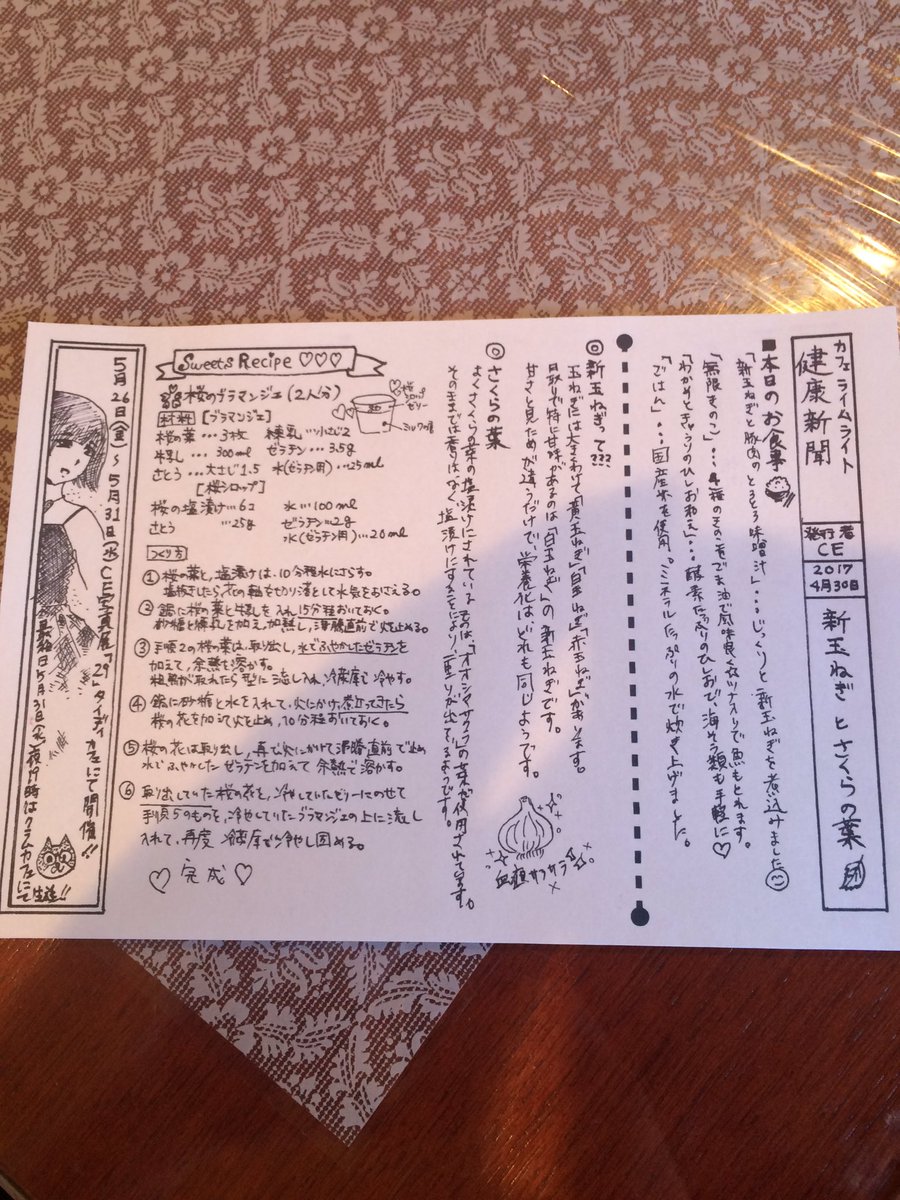 カフェ ライムライト
健康新聞
発行者
CE
2017
4月30日
新玉ねぎとさくらの葉
■本日のお食事
「新玉ねぎと豚肉のとろとろ味噌汁」…じっくりと新玉ねぎを煮込みました
「無限きのこ」…4種のきのこをごま油で風味良く☆ツナ入りで魚もとれます。
「わかめときゅうりのひしおあえ」…酵素たっぷりのひしおで、海そう類も手軽に♡
「ごはん」…国産米を使用。ミネラルたっぷりの水で炊き上げました。
◎新玉ねぎって???
玉ねぎには大きくわけて「黄玉ねぎ」「白玉ねぎ」「赤玉ねぎ」があります。
日取りで特に甘味があるのは「白玉ねぎ」の新玉ねぎです。
甘さと見ためが違うだけで、栄養化は、どれも同じようです。
血液サラサラ
◎さくらの葉
よくさくらの葉の塩漬けにされているものは、「オオシマザクラ」の葉が使用されています。
そのままでは香りはなく、塩漬けにすることにより、香りが出ているようです。
Sweets Recipe ♡♡♡
桜のブラマンジェ(2人分)
桜
シロップ
ゼリー
ミルク層
材料 [ブラマンジェ]
桜の葉…3枚 練乳…小さじ2
牛乳…300ml ゼラチン…3.5g
さとう…大さじ1.5 水(ゼラチン用)…25ml
[桜シロップ]
桜の塩漬け…6コ 水…100ml
さとう …25g ゼラチン…2g
水(ゼラチン用)…20ml
つくり方
①桜の葉と、塩漬けは、10分程水にさらす。
塩抜きしたら花の軸をせり落として水気をおさえる。
②鍋に桜の葉と牛乳を入れ15分程おいておく。
砂糖と練乳を加え、加熱し、沸騰直前で火を止める。
③手順2の桜の葉は、取り出し、水でふやかしたゼラチンを
加えて、余熱で溶かす。
粗熱が取れたら型に流し入れ、冷蔵庫で冷やす。
④鍋に砂糖と水を入れて、火にかけ、煮立ってきたら
桜の花を加えて火を止め、10分程おいておく。
⑤桜の花は取り出し、再び火にかけて沸騰直前で止め
水でふやかしたゼラチンを加えて余熱で溶かす。
⑥取り出していた桜の花を、冷やしていたゼリーにのせて
手順5のものを、冷やしていたブラマンジェの上に流し
入れて、再度冷蔵庫で冷やし固める。
♡完成♡
5月26日(金)〜5月31日(水)CE写真展「29」タイディカフェにて開催!!
最終日5月31日(水)夜19時はクラムカフェにて
生誕!!